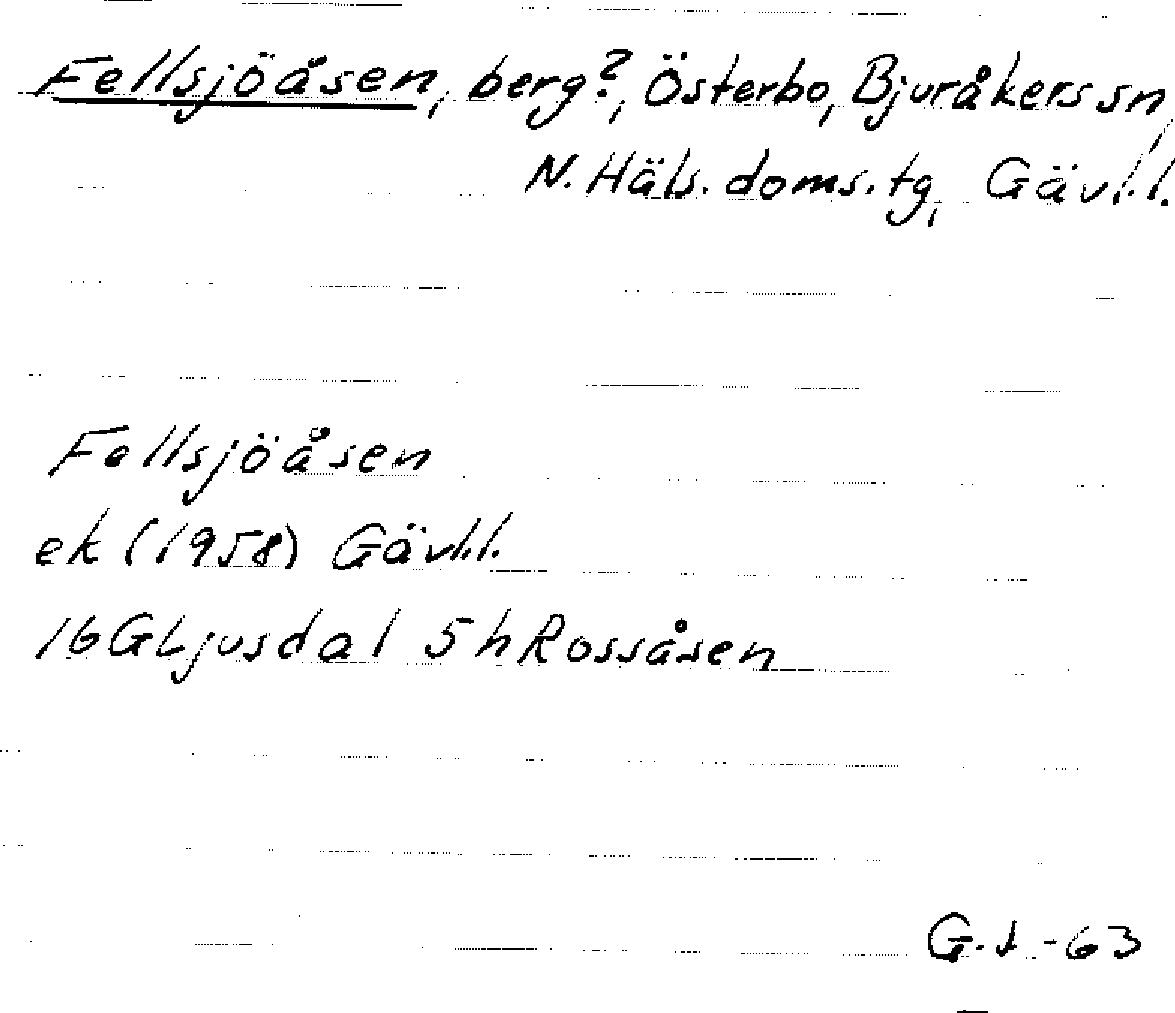 Fellsjöåsen, berg?, Österbo, Bjuråkers sn,
N. Häls. doms. tg, Gävl.l.
Fellsjöåsen
ek (1958) Gävl.l.
16G Ljusdal 5h Rossåsen
G.s -63